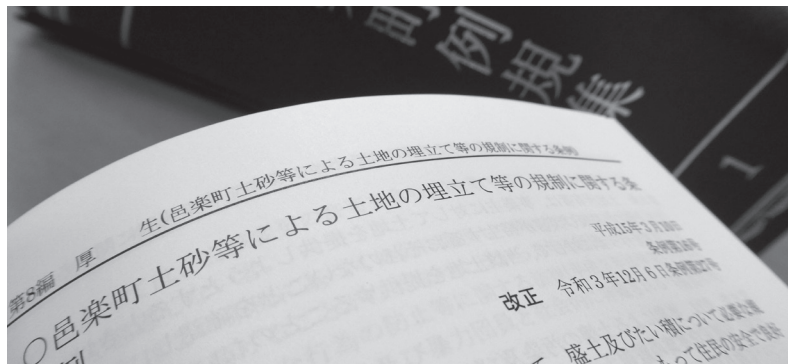 例規集
1
第8編 厚 生(邑楽町土砂等による土地の埋立て等の規制に関する条例)
○邑楽町土砂等による土地の埋立て等の規制に関する条
例
平成15年3月
条例第
改正 令和3年12月6日条例第27号
盛土及びたい積について必要な
って住民の安全で良好